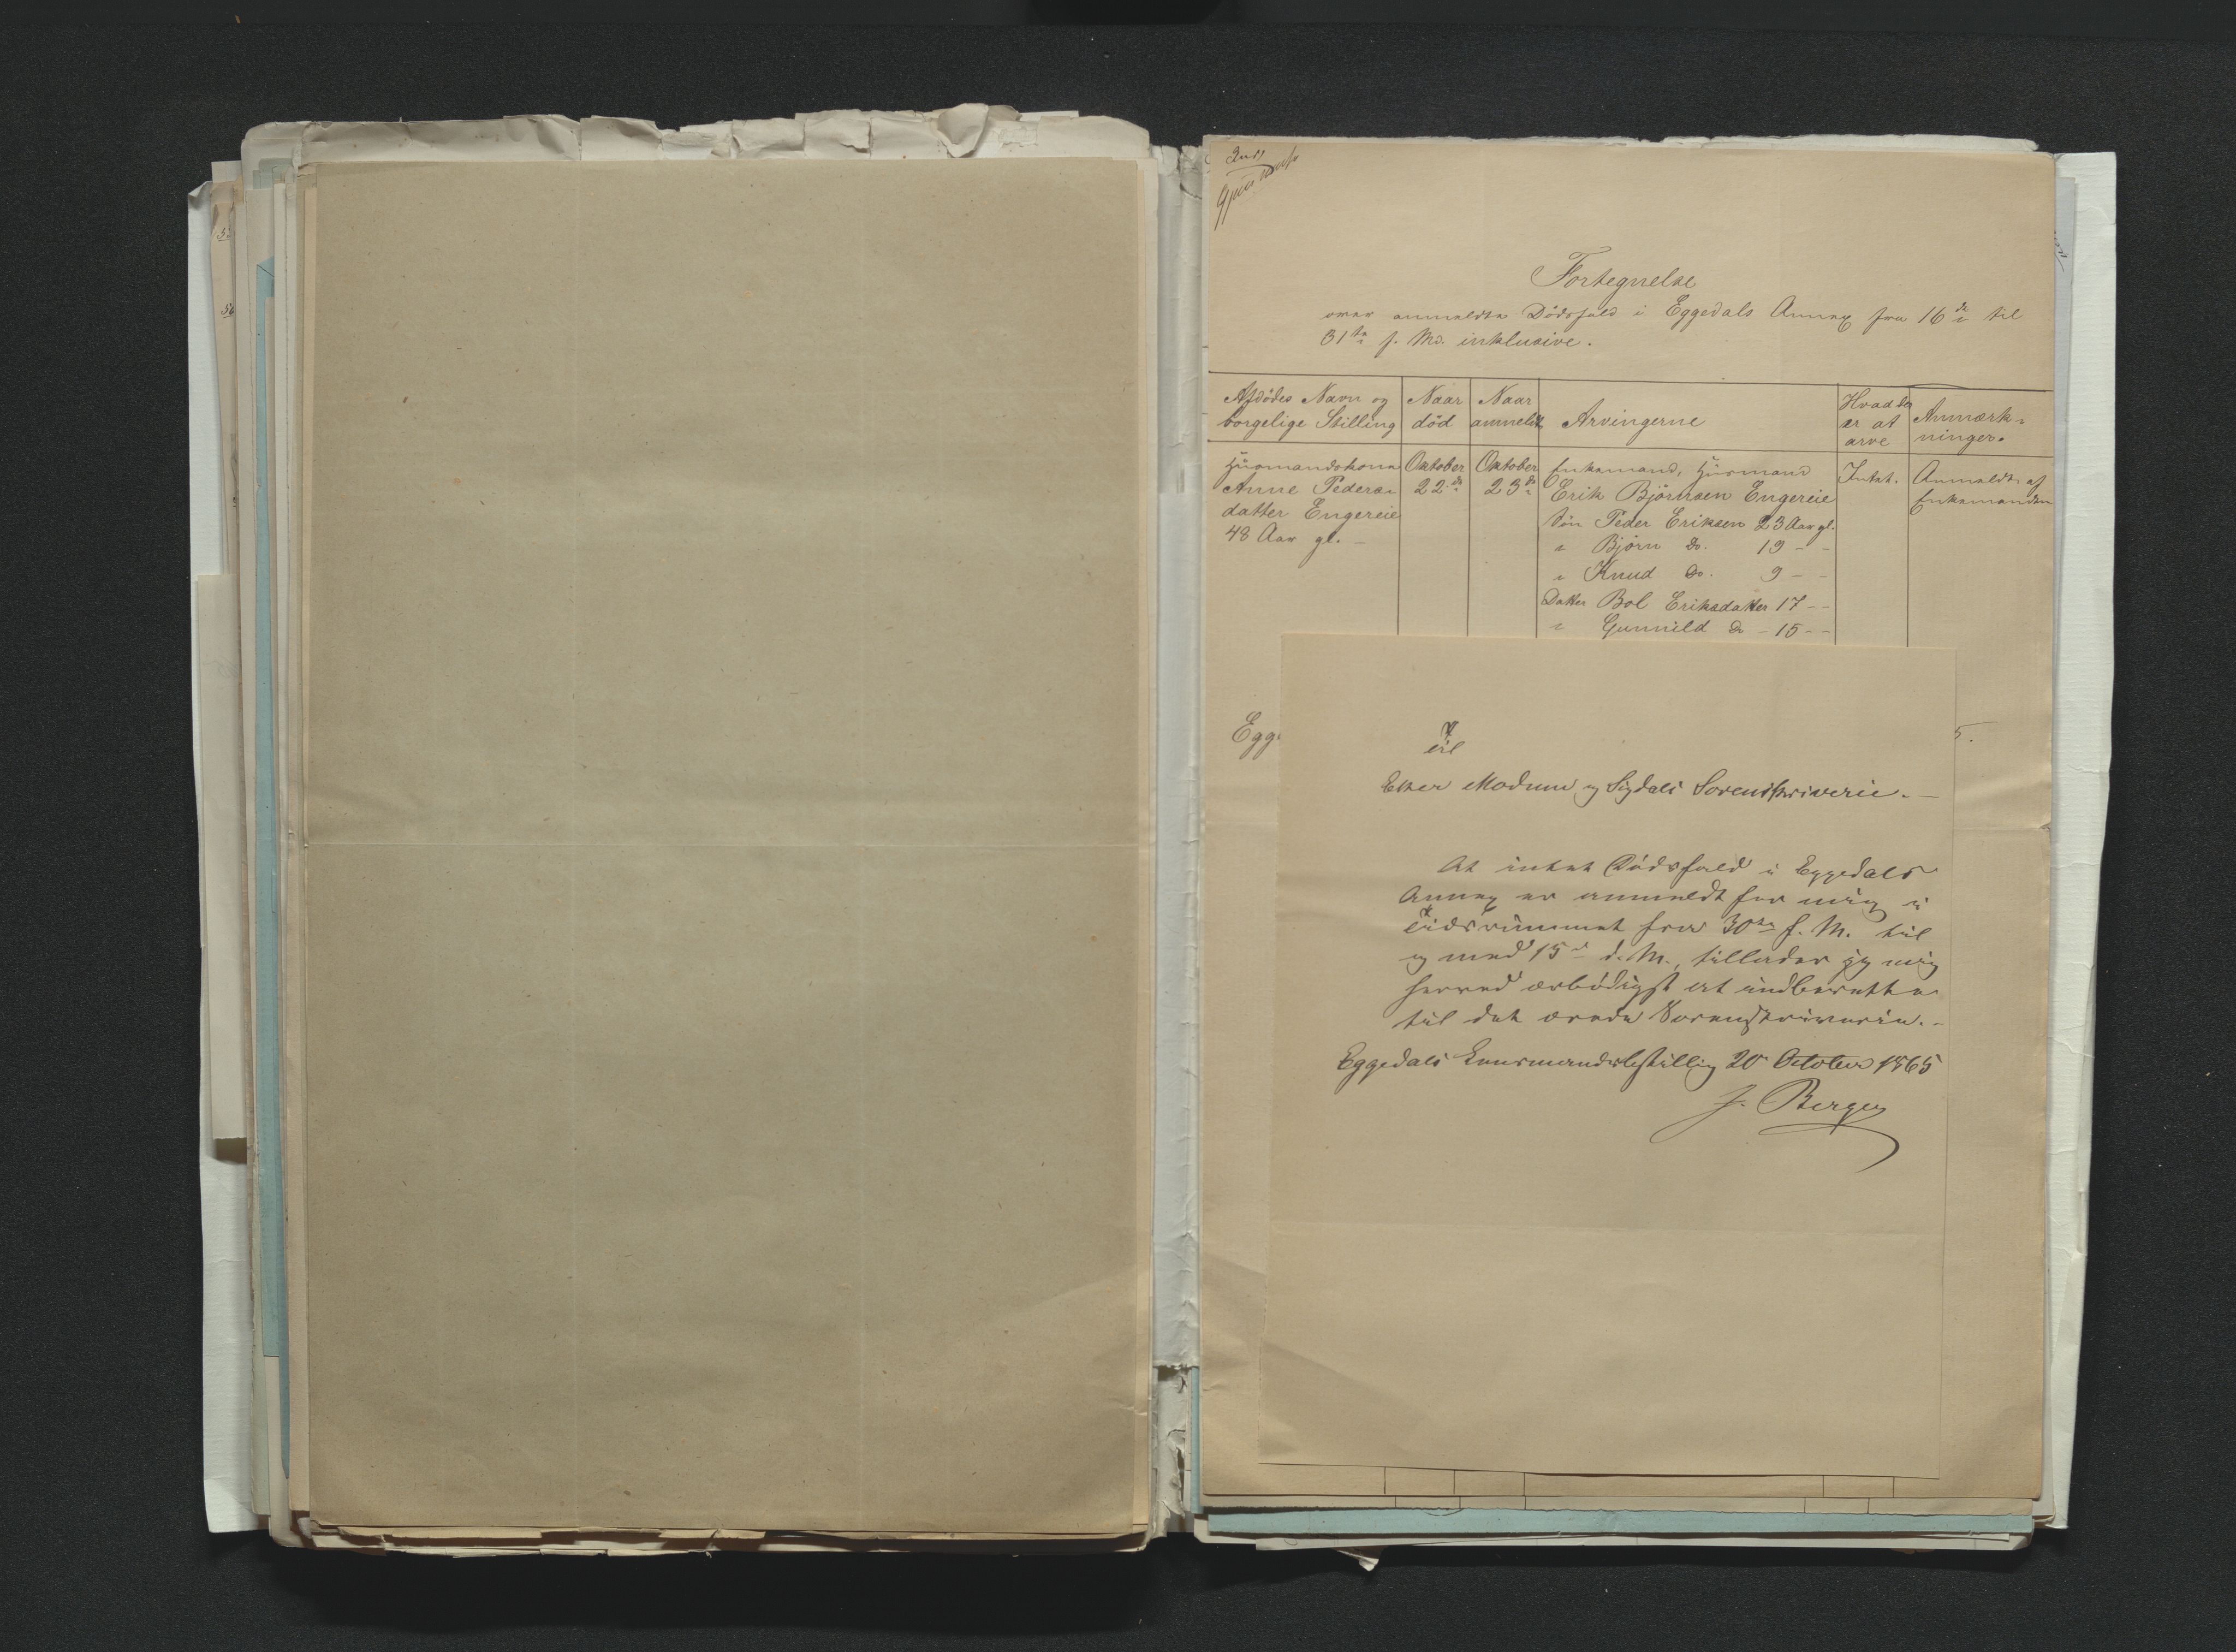 Fortegnelse
over anmeldte Dödsfald i Eggedals Annex fra 16de til
31te f. Md. inklusive.
Afdödes Navn og borgelige Stilling
Naar död
Naar anmeldt
Arvingerne
Hvad der er at arve
Anmærkninger.
Huusmandskone
Anne Peders-
datter Engereie
48 Aar gl. –
Oktober
22de
Oktober
23de
Enkemand, Huusmand
Erik Björnsen Engereie
Sön Peder Eriksen 23 Aar gl.
" Björn Do. 19 – –
" Knud Do. 9 – –
Datter Bol Eriksdatter 17 – –
" Gunnild Do – 15 – –
Intet.
Anmeldt af
Enkemanden
Egge
5.
Til
Eker Modum og Sigdals Sorenskriverie. –
At intet Dödsfald i Eggedals
Annex er anmeldt for mig i
Tidsrummet fra 30te f. M. til
og med 15de d. M., tillader jeg mig
herved ærbödigst at indberette
til det ærede Sorenskriverie. –
Eggedals Lensmandsbestilling 20 October 1865
J. Bergen